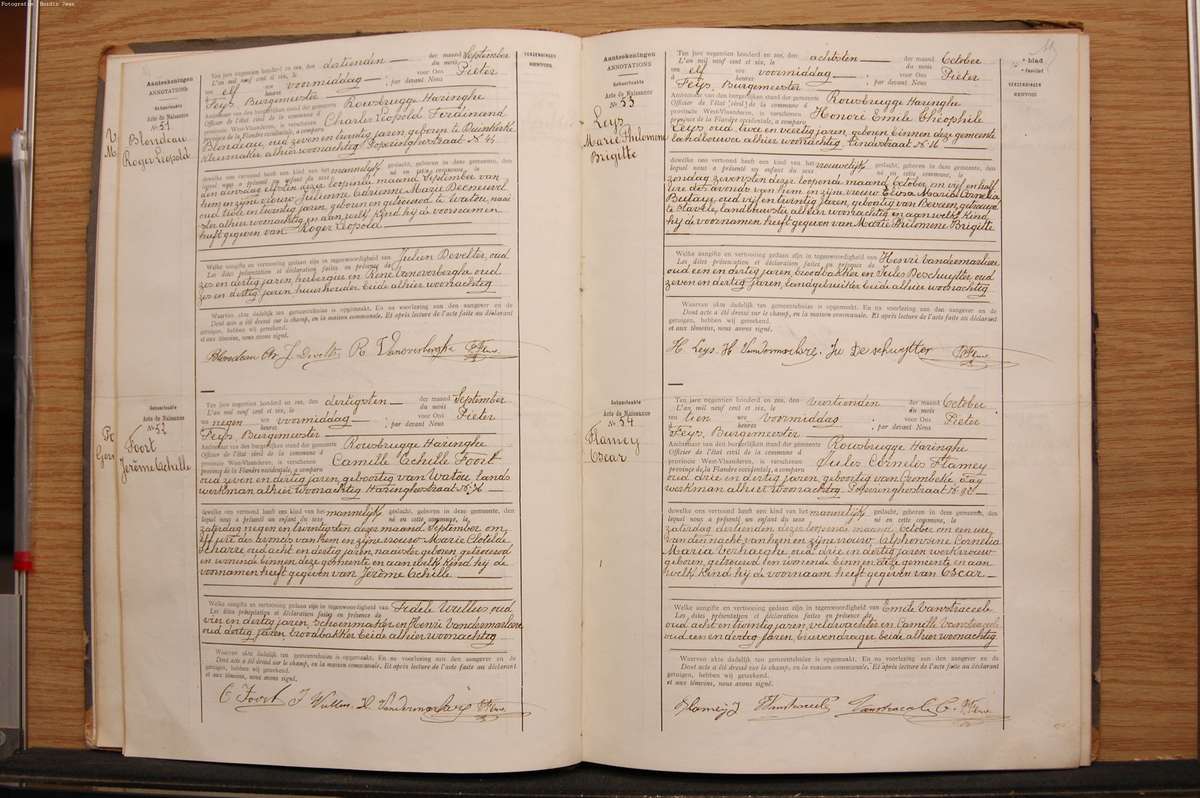 Fotografie: Boidin Jean
Aanteekeningen
ANNOTATIONS
Geboorteakte
Acte de Naissance
N. 51
Blondeau
Roger Leopold
Ten jare negentien honderd en zes, den dertienden der maand September
L'an mil neuf cent et six, le du mois
ten elf ure voormiddag voor Ons Pieter
heures ; par devant Nous
Feys, Burgemeester
Ambtenaar van den burgerlijken stand der gemeente Rousbrugge Haringhe
Officier de l'état civil de la commune d
provincie West-Vlaanderen, is verschenen Charles Leopold Ferdinand
province de la Flandre occidentale, a comparu
Blondeau, oud zeven en twintig jaren geboren te Duinkerke
kleermaker alhier woonachtig Poperinghestraat N. 44
dewelke ons vertoond heeft een kind van het mannelijk geslacht, geboren in deze gemeente, den
lequel nous a présenté un enfant du sexe né en cette commune, le
dinsdag elfsten dezer loopende maand September van
hem en zijne vrouw Julienne Marie
oud twee en twintig jaren, geboren en getrouwd te Watou, naai
ster alhier woonachtig en aan welk kind hij de voornamen
heeft gegeven van Roger Leopold
Welke aangifte en vertooning gedaan zijn in tegenwoordigheid van Julien Develter, oud
Les dites présentation et déclaration faites en présence de
zes en dertig jaren, herbergier en René Vanoverberghe oud
zes en dertig jaren, huurhouder beide alhier woonachtig
Waarvan akte dadelijk ten gemeentehuize is opgemaakt. En na voorlezing aan den aangever en de
Dont acte a été dressé sur le champ, en la maison communale. Et après lecture de l'acte faite au déclarant
getuigen, hebben wij geteekend.
et aux témoins, nous avons signé.
Blondeau Ch J. Develter R Vanoverberghe
Geboorteakte
Acte de Naissance
N. 52
Foort
Jerôme Achille
Ten jare negentien honderd en zes, den dertigsten der maand September
L'an mil neuf cent et six, le du mois
ten negen ure voormiddag voor Ons Pieter
heures ; par devant Nous
Feys, Burgemeester
Ambtenaar van den burgerlijken stand der gemeente Rousbrugge Haringhe
Officier de l'état civil de la commune d
provincie West-Vlaanderen, is verschenen Camille Achille Foort
province de la Flandre occidentale, a comparu
oud zeven en dertig jaren, geboortig van Watou lands
werkman alhier woonachtig Haringhestraat N. 36
dewelke ons vertoond heeft een kind van het mannelijk geslacht, geboren in deze gemeente, den
lequel nous a présenté un enfant du sexe né en cette commune, le
zaterdag negen en twintigsten dezer maand September om
elf ure des avonds van hem en zijne vrouw Marie Clotilde
oud acht en dertig jaren, naaister geboren, getrouwd
en wonende binnen deze gemeente en aan welk kind hij de
voornamen heeft gegeven van Jerôme Achille
Welke aangifte en vertooning gedaan zijn in tegenwoordigheid van Fidele Wullens oud
Les dites présentation et déclaration faites en présence de
jaren, schoenmaker en Henri Vandermarliere
oud dertig jaren, broodbakker beide alhier woonachtig
Waarvan akte dadelijk ten gemeentehuize is opgemaakt. En na voorlezing aan den aangever en de
Dont acte a été dressé sur le champ, en la maison communale. Et après lecture de l'acte faite au déclarant
getuigen, hebben wij geteekend.
et aux témoins, nous avons signé.
C Foort F Wullens H. Vandermarliere
Aanteekeningen
ANNOTATIONS
Geboorteakte
Acte de Naissance
N. 53
Leys
Marie Philomene
Brigitte
Ten jare negentien honderd en zes, den achtsten der maand October
L'an mil neuf cent et six, le du mois
ten elf ure voormiddag voor Ons Pieter
heures ; par devant Nous
Feys, Burgemeester
Ambtenaar van den burgerlijken stand der gemeente Rousbrugge Haringhe
Officier de l'état civil de la commune d
provincie West-Vlaanderen, is verschenen Honoré Emile Théophile
province de la Flandre occidentale, a comparu
Leys oud twee en veertig jaren, geboren binnen deze gemeente
landbouwer alhier woonachtig Lindestraat N. 16
dewelke ons vertoond heeft een kind van het vrouwelijk geslacht, geboren in deze gemeente, den
lequel nous a présenté un enfant du sexe né en cette commune, le
zondag zevensten dezer loopende maand October om vijf en half
ure des avonds van hem en zijne vrouw Elisa Maria Cornelia
oud vijf en twintig jaren, geboortig van Beveren, getrouwd
te Stavele, landbouwster alhier woonachtig en aan welk kind
hij de voornamen heeft gegeven van Marie Philomene Brigitte
Welke aangifte en vertooning gedaan zijn in tegenwoordigheid van Henri Vandermarliere
Les dites présentation et déclaration faites en présence de
oud een en dertig jaren, broodbakker en Jules Deschuytter, oud
zeven en dertig jaren, landgebruiker beide alhier woonachtig
Waarvan akte dadelijk ten gemeentehuize is opgemaakt. En na voorlezing aan den aangever en de
Dont acte a été dressé sur le champ, en la maison communale. Et après lecture de l'acte faite au déclarant
getuigen, hebben wij geteekend.
et aux témoins, nous avons signé.
H Leys. H Vandermarliere. Ju Deschuytter
Geboorteakte
Acte de Naissance
N. 54
Flamey
Oscar
Ten jare negentien honderd en zes, den veertienden der maand October
L'an mil neuf cent et six, le du mois
ten tien ure voormiddag voor Ons Pieter
heures ; par devant Nous
Feys, Burgemeester
Ambtenaar van den burgerlijken stand der gemeente Rousbrugge Haringhe
Officier de l'état civil de la commune d
provincie West-Vlaanderen, is verschenen Jules Cornelis Flamey
province de la Flandre occidentale, a comparu
oud drie en dertig jaren, geboortig van Crombeke dag
werkman alhier woonachtig, Poperinghestraat N.
dewelke ons vertoond heeft een kind van het mannelijk geslacht, geboren in deze gemeente, den
lequel nous a présenté un enfant du sexe né en cette commune, le
zaterdag dertienden dezer loopende maand October om een ure
van den nacht van hem en zijne vrouw Alphonsine Cornelia
Maria Verhaeghe oud drie en dertig jaren werkvrouw
geboren, getrouwd en wonende binnen deze gemeente en aan
welk kind hij de voornaam heeft gegeven van Oscar
Welke aangifte en vertooning gedaan zijn in tegenwoordigheid van Emile Vanstraceele
Les dites présentation et déclaration faites en présence de
oud acht en twintig jaren, veldwachter en Camille Vanstraceele
oud een en dertig jaren, brievendrager beide alhier woonachtig
Waarvan akte dadelijk ten gemeentehuize is opgemaakt. En na voorlezing aan den aangever en de
Dont acte a été dressé sur le champ, en la maison communale. Et après lecture de l'acte faite au déclarant
getuigen, hebben wij geteekend.
et aux témoins, nous avons signé.
Flamey J Vanstraceele Vanstraceele C.
blad
feuillet